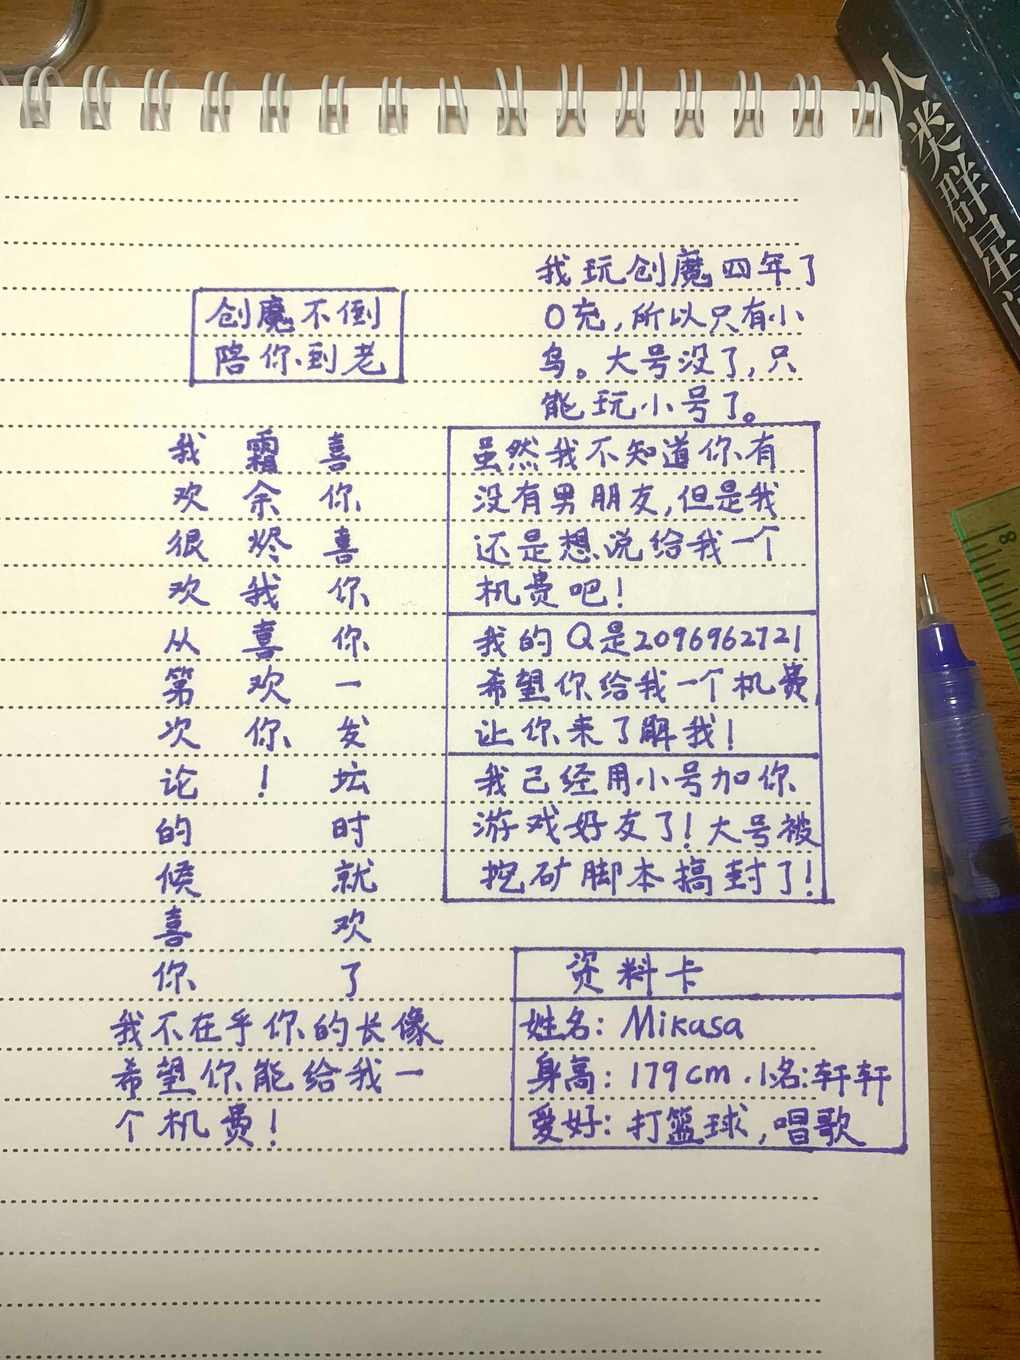 人类群星
创魔不倒
陪你到老
我玩创魔四年了
0充,所以只有小
鸟。大号没了,只
能玩小号了。
我 霜 喜
欢 余 你
很 烬 喜
欢 我 你
从 喜 你
第 欢 一
次 你 发
论 ! 坛
的 时
候 就
喜 欢
你 了
我不在乎你的长像
希望你能给我一
个机贵!
虽然我不知道你有
没有男朋友,但是我
还是想说给我一个
机贵吧!
我的Q是2096962721
希望你给我一个机贵,
让你来了解我!
我已经用小号加你
游戏好友了!大号被
挖矿脚本搞封了!
资料卡
姓名:Mikasa
身高:179cm.小名:轩轩
爱好:打篮球,唱歌
8